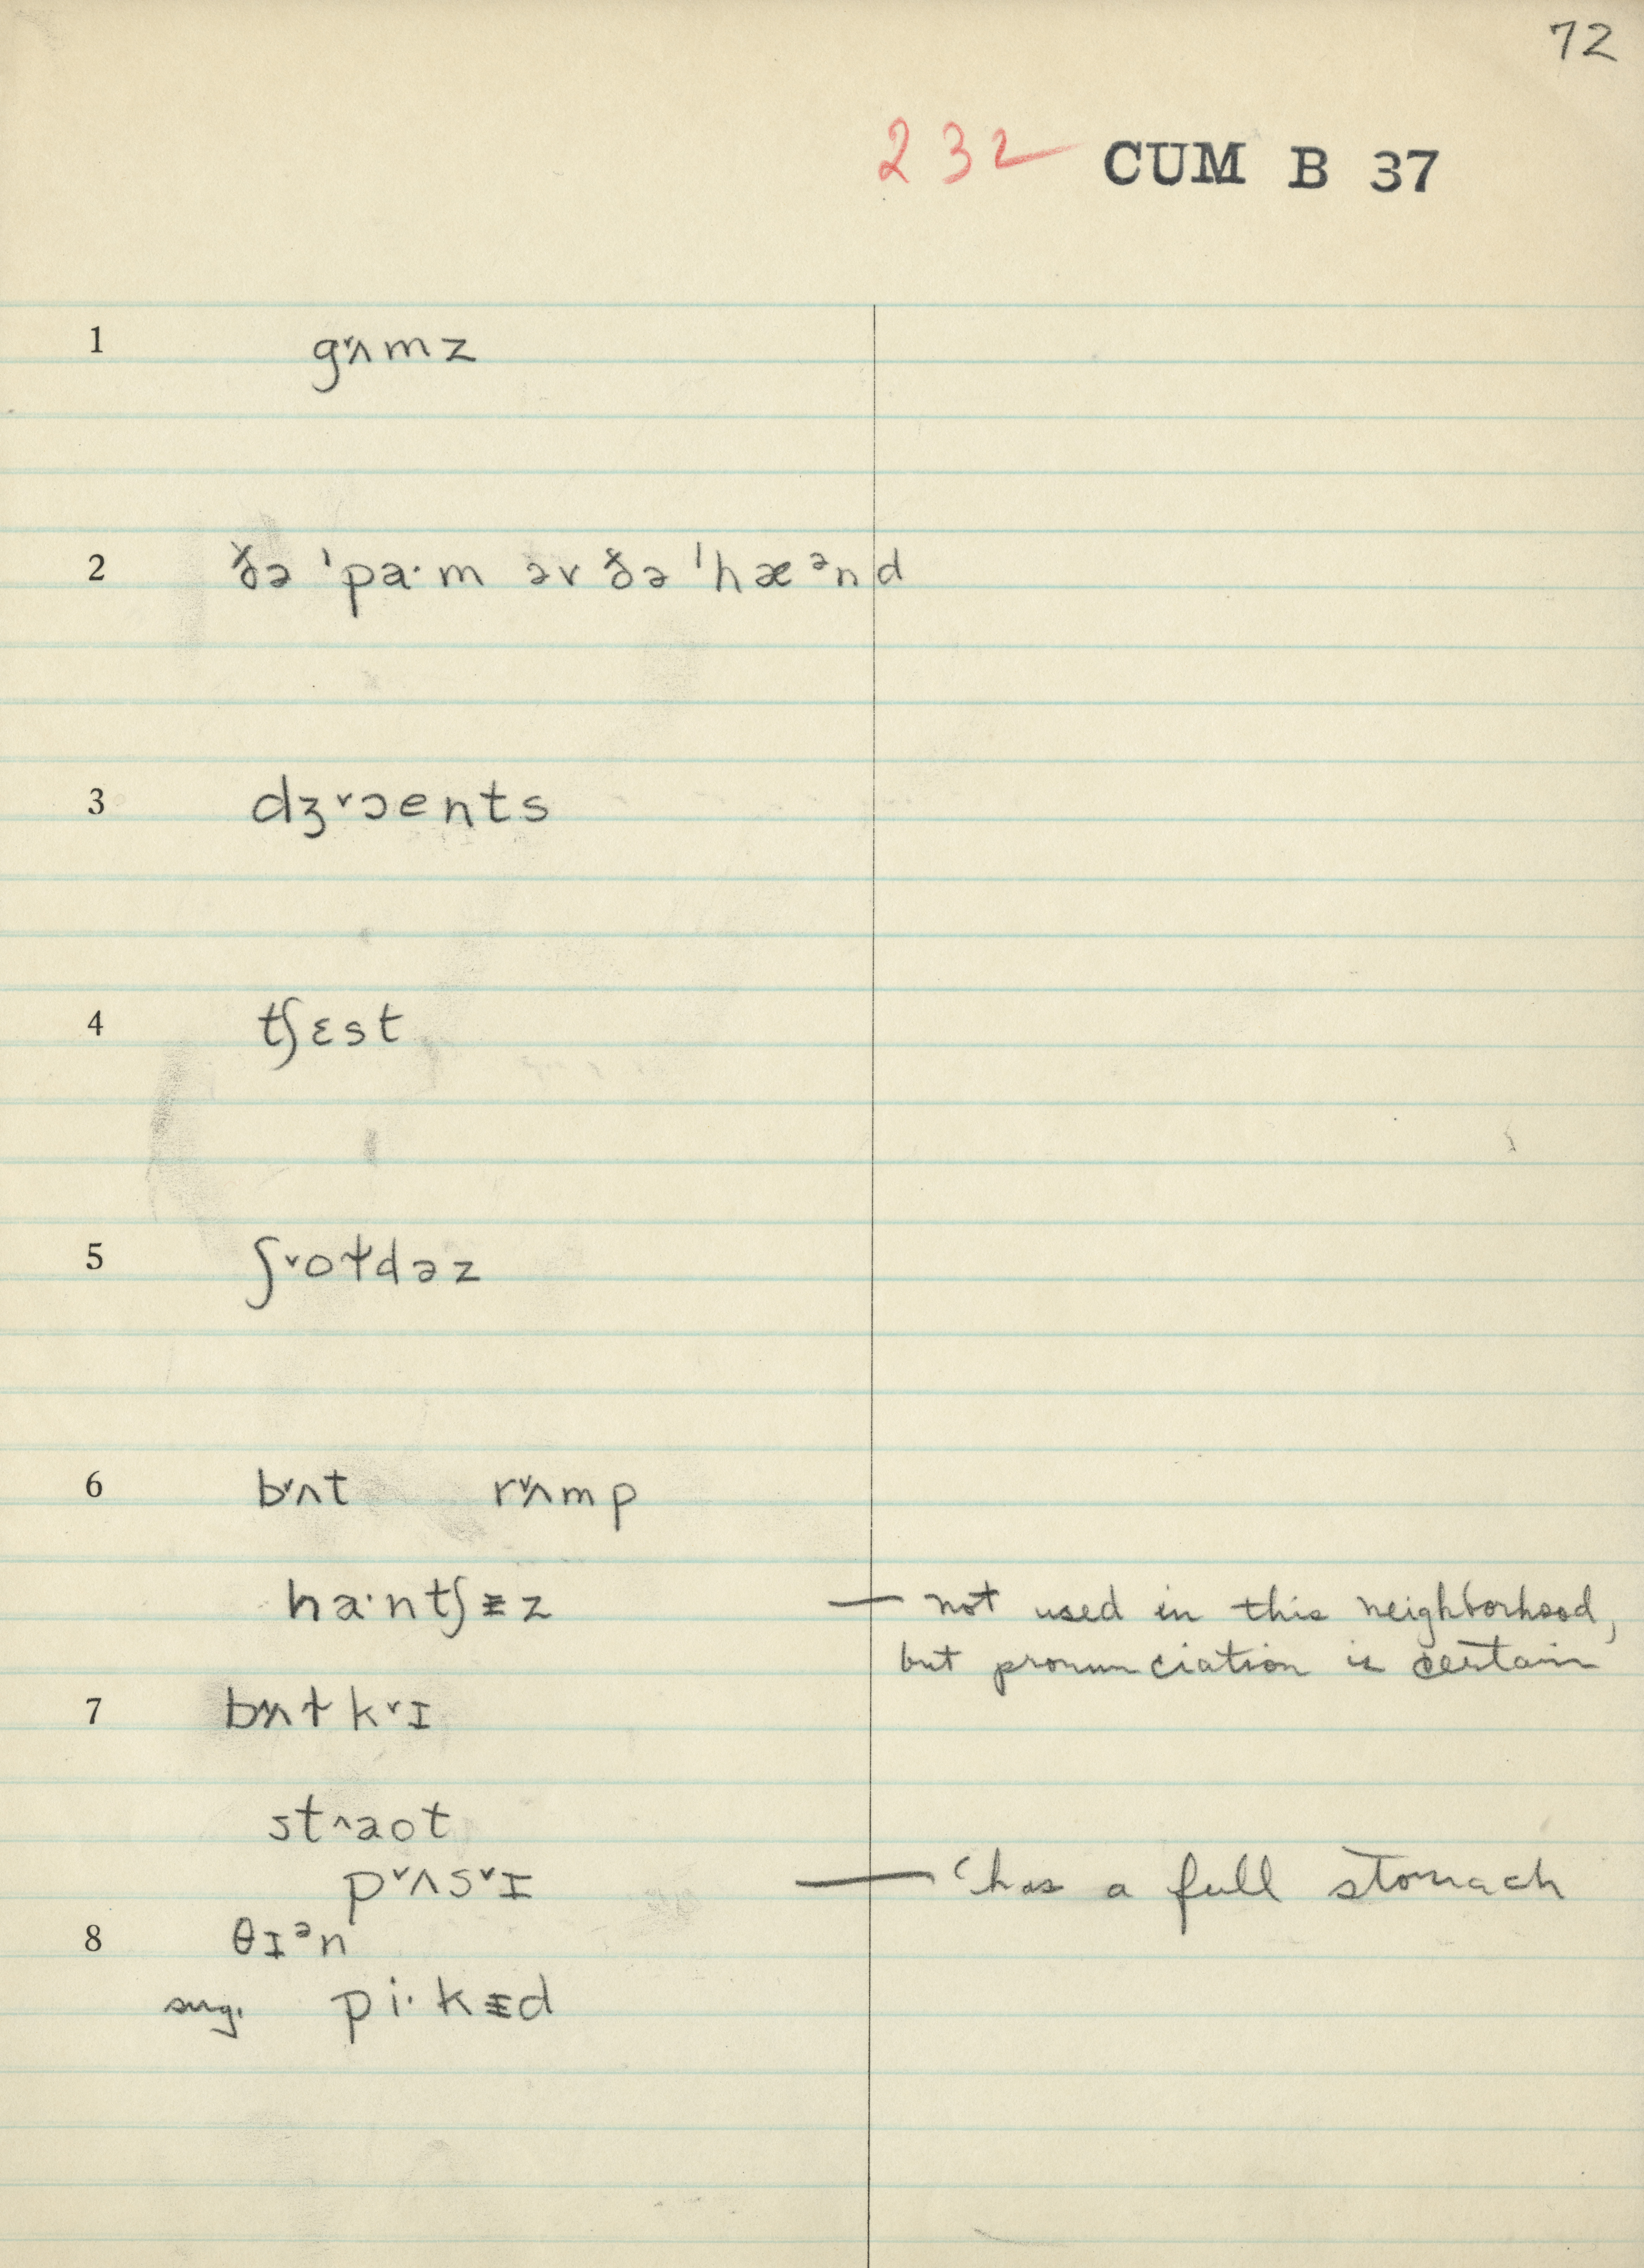 72
232 CUM B 37
1 gᵛʌmz
2 ðə ˈpa·m əv ðə ˈhæᵊnd
3 dʒᵛɔents
4 tʃɛst
5 ʃᵛoɫdəz
6 bᵛʌt rᵛʌmp
ha·ntʃɪ̵z — not used in this neighborhood,
but pronunciation is certain
7 bᵛʌɫkᵛɪ
st^aot
pᵛʌsᵛɪ — ‘has a full stomach
8 θɪᵊn
sug. pi·kɪ̵d